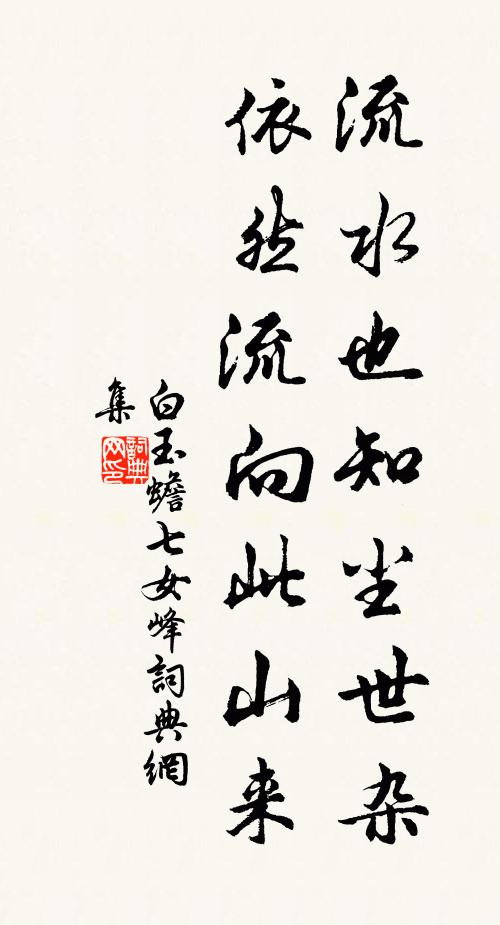 流水也知尘世杂
依然流向此山来
白玉蟾七女峰詞典網
集
詞典
网印